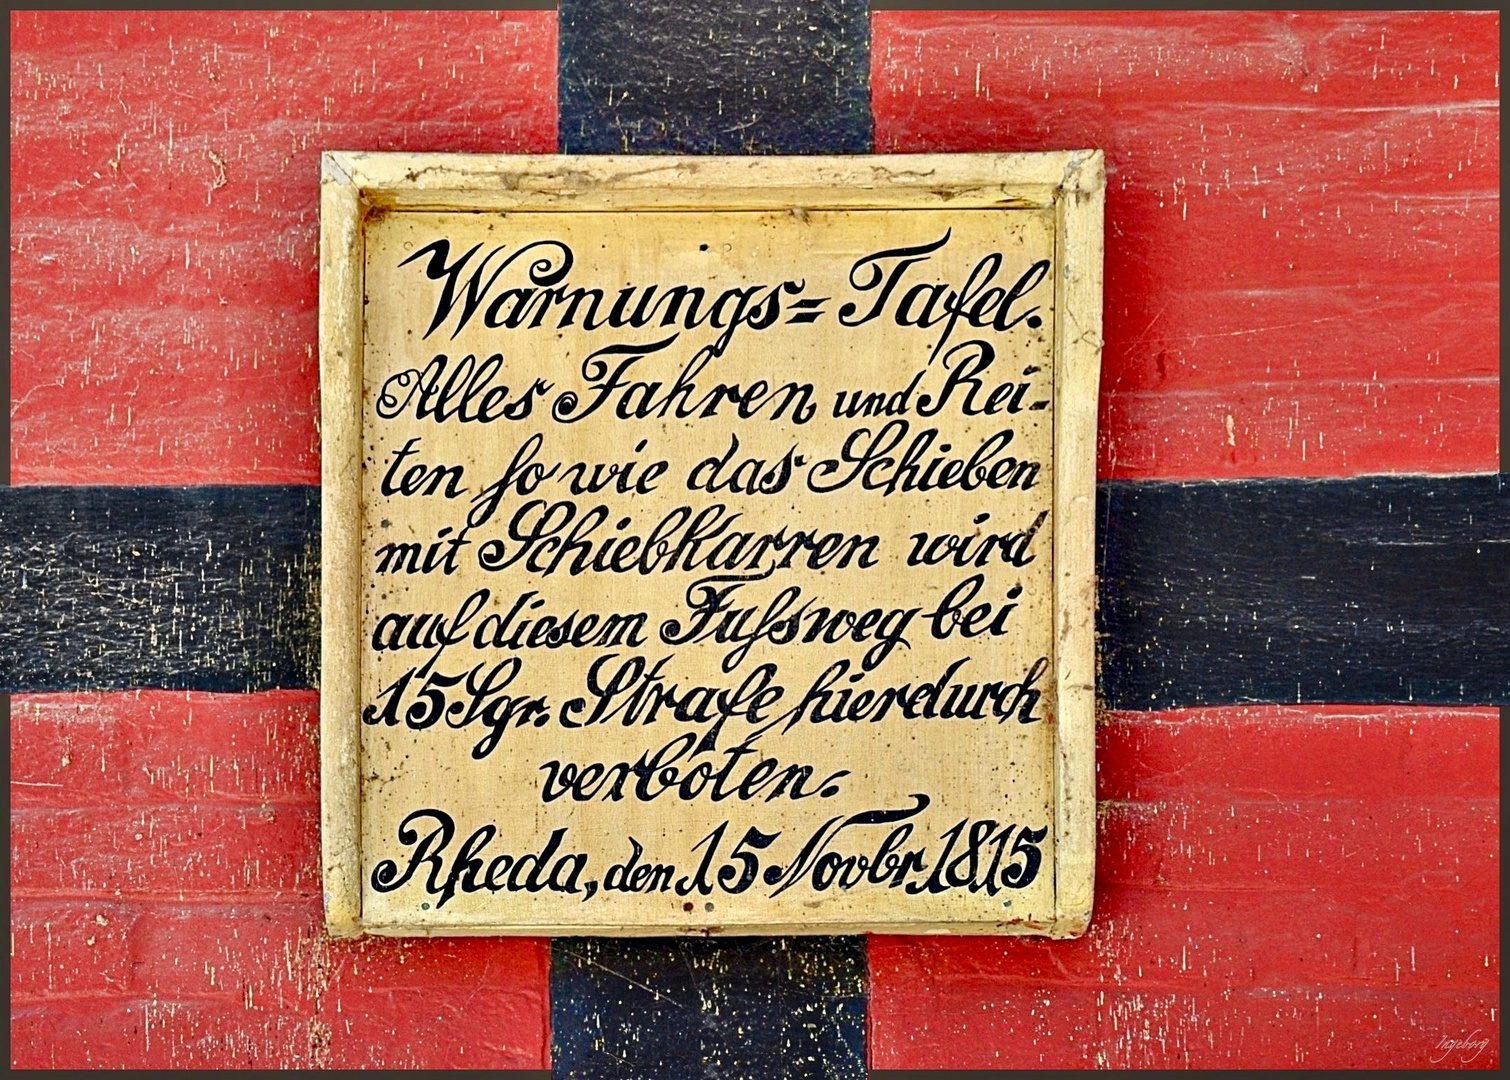 Warnungs=Tafel.
Alles Fahren und Rei-
ten so wie das Schieben
mit Schiebkarren wird
auf diesem Fussweg bei
15 Sgr. Strafe hierdurch
verboten.
Rheda, den 15 Novbr. 1815
Ingeborg